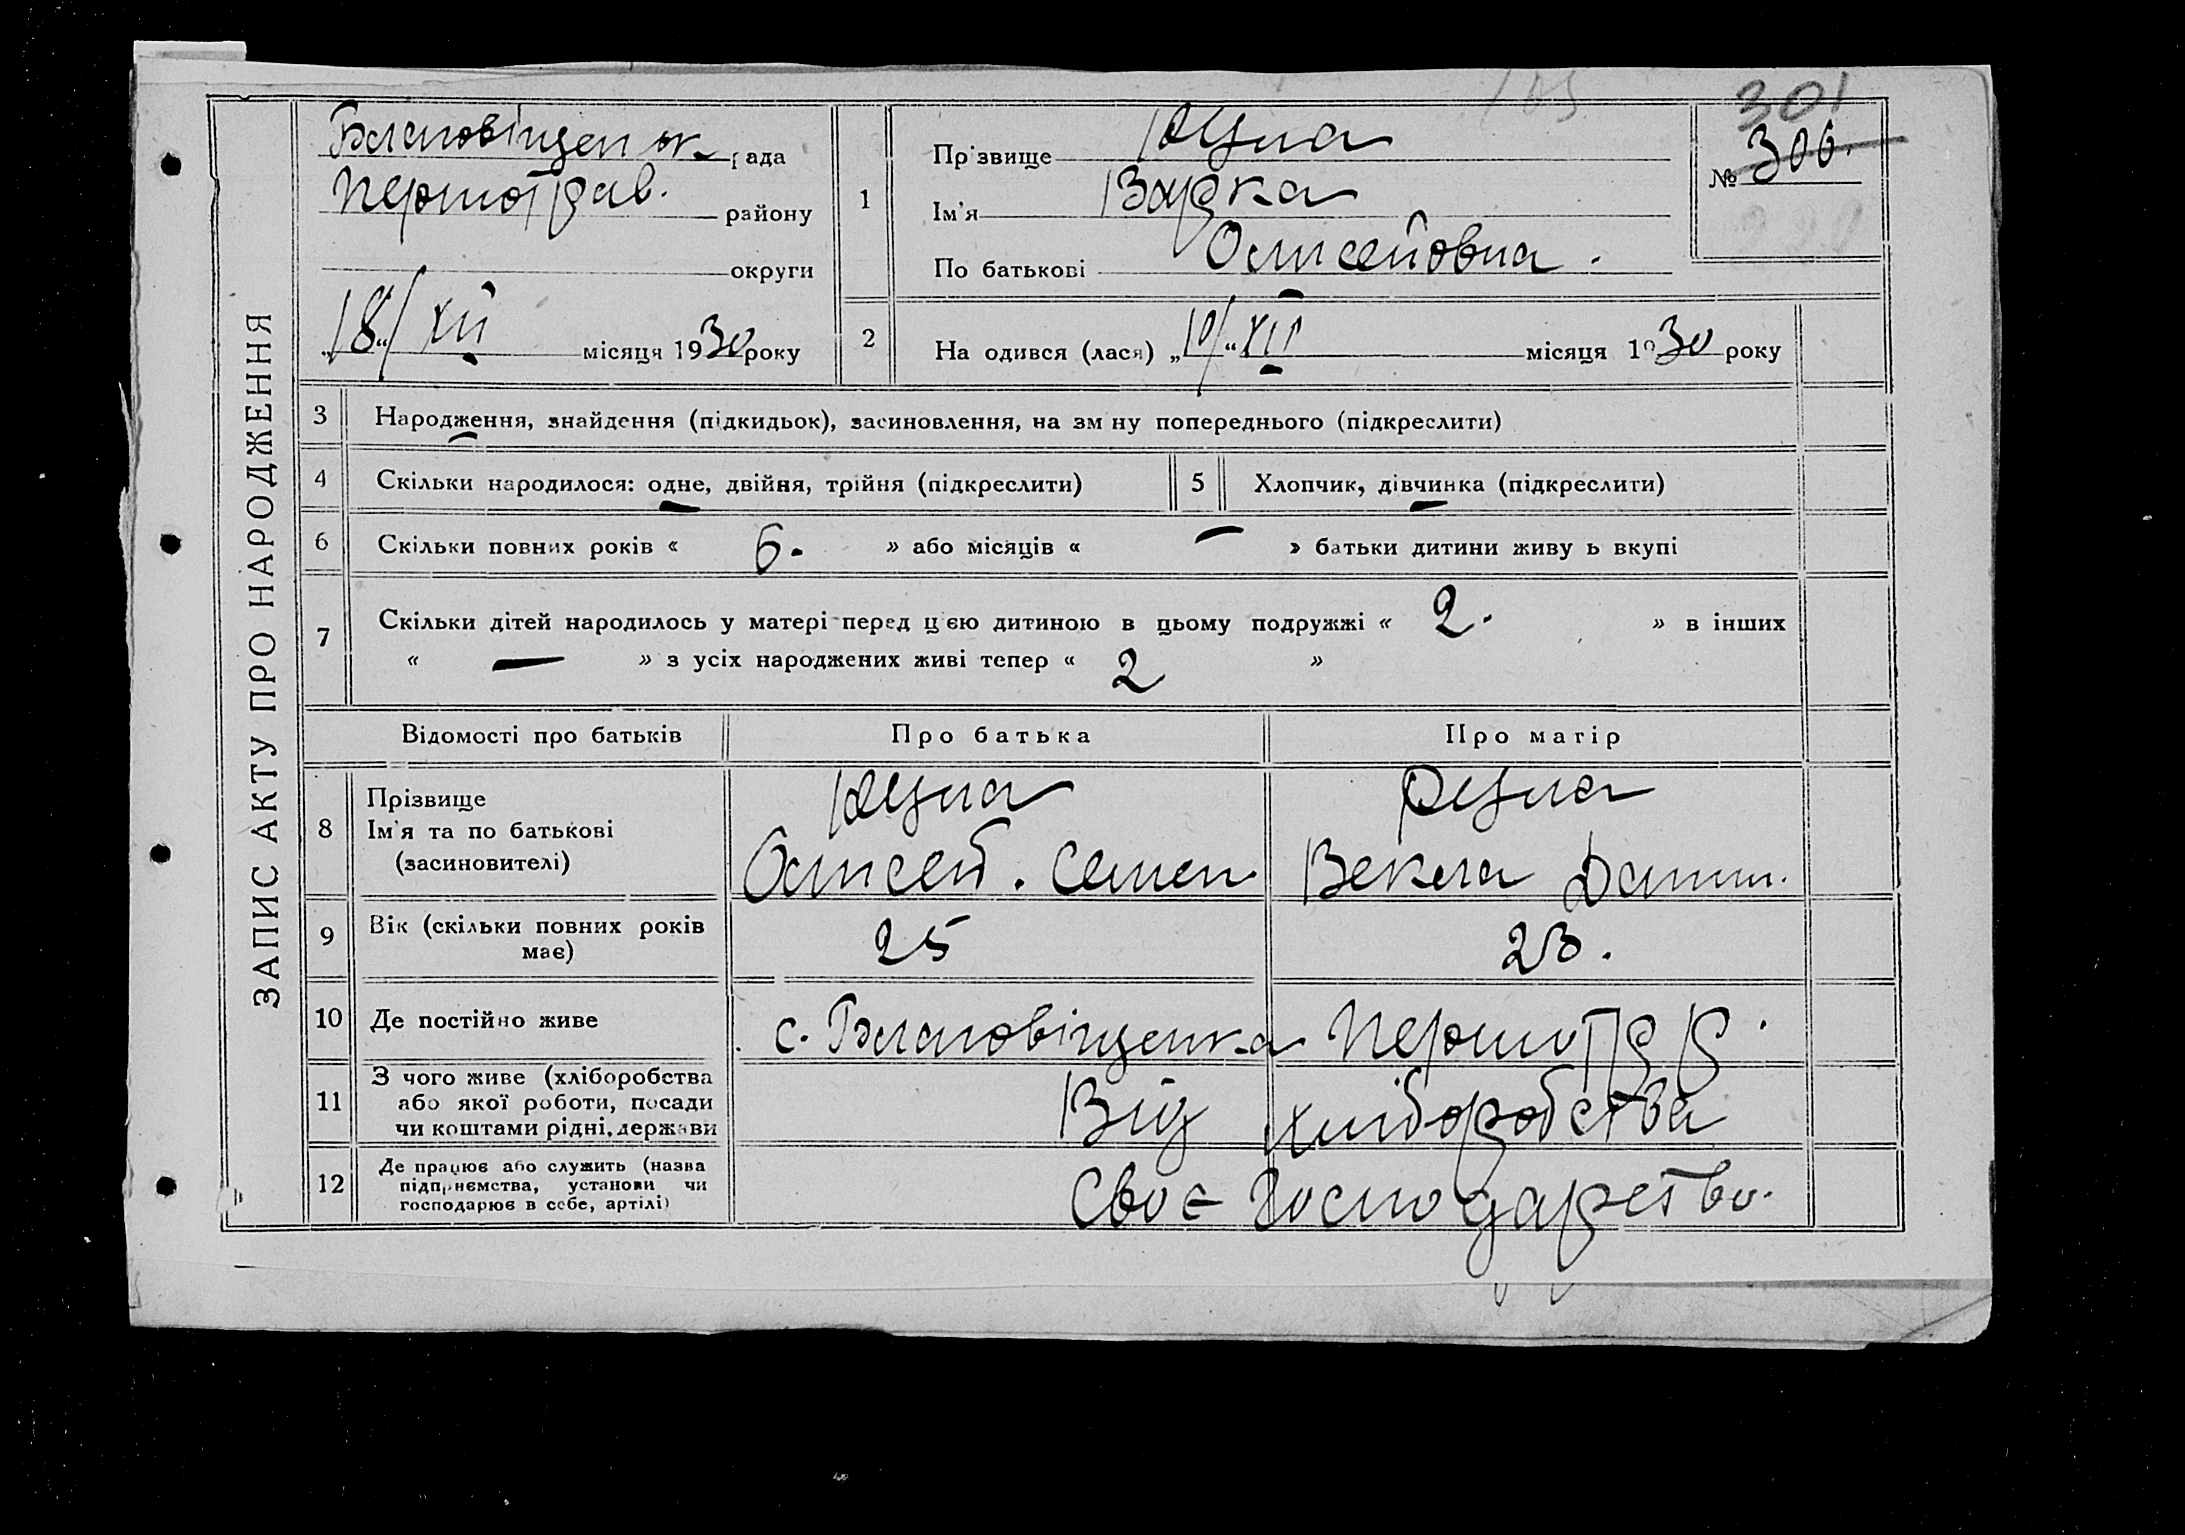 ЗАПИС АКТУ ПРО НАРОДЖЕННЯ
Благовіщенск рада
Першотрав. району
округи
„18“ XII місяця 1930 року
301
№ 306.
1
Прізвище Юдна
Ім'я Варка
По батькові Олисейовна.
2
На одився (лася) „10“ XII місяця 1930 року
3 Народження, знайдення (підкидьок), засиновлення, на зм ну попереднього (підкреслити)
4 Скільки народилося: одне, двійня, трійня (підкреслити) 5 Хлопчик, дівчинка (підкреслити)
6 Скільки повних років « 6. » або місяців « — » батьки дитини живу ь вкупі
7 Скільки дітей народилось у матері перед ц єю дитиною в цьому подружжі « 2. » в інших
« — » з усіх народжених живі тепер « 2 »
Відомості про батьків Про батька Про матір
8 Прізвище
Ім'я та по батькові
(засиновителі)
Юдна Юдна
Олисей. Семен Векла Даним.
9 Вік (скільки повних років
має)
25 23.
10 Де постійно живе с. Благовіщенка Першотр р.
11 З чого живе (хліборобства
або якої роботи, посади
чи коштами рідні, держави
Від хліборобства
12 Де працює або служить (назва
підприємства, установи чи
господарює в себе, артілі)
Своє господарство.